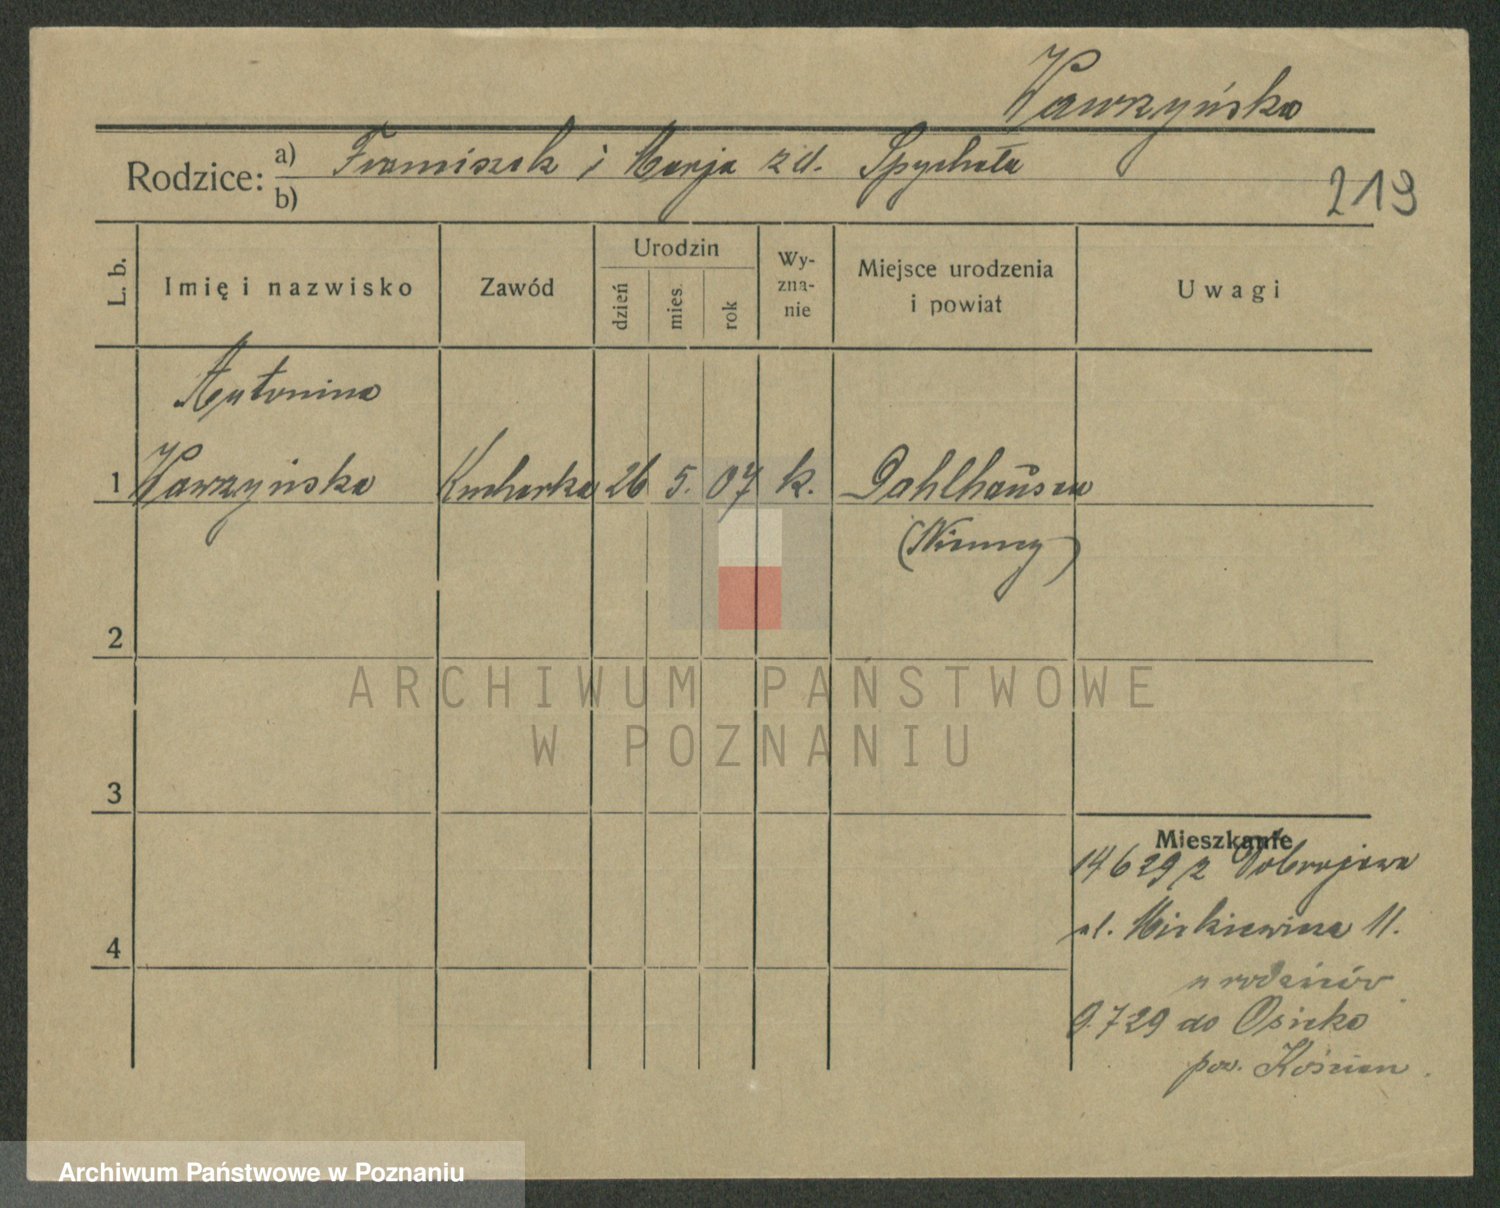 Wawrzyńska
Rodzice: a) Franciszek i Marja z d. Spychała
b)
219
L. b.
Imię i nazwisko
Zawód
Urodzin
dzień
mies.
rok
Wy-
zna-
nie
Miejsce urodzenia
i powiat
Uwagi
Antonina
1 Wawrzyńska Kucharka 26 5. 07 k. Dahlhausen
(Niemcy)
2
ARCHIWUM PAŃSTWOWE
W POZNANIU
3
Mieszkanie
14 6 29 z Dobrojewa
ul. Mickiewicza 11.
4
u rodziców
9.7 29 do Osieka
pow. Kościan.
Archiwum Państwowe w Poznaniu